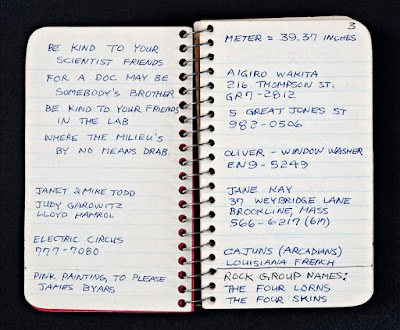 BE KIND TO YOUR
SCIENTIST FRIENDS
FOR A DOC MAY BE
SOMEBODY'S BROTHER
BE KIND TO YOUR FRIENDS
IN THE LAB
WHERE THE MILIEU'S
BY NO MEANS DRAB.
JANET & MIKE TODD
JUDY GAROWITZ
LLOYD HAMROL
ELECTRIC CIRCUS
777-7080
PINK PAINTING, TO PLEASE
JAMES BYARS
3
METER = 39.37 INCHES
AIGIRO WAKITA
216 THOMPSON ST.
GR7-2812
5 GREAT JONES ST
982-0506
OLIVER - WINDOW WASHER
EN9-5249
JANE KAY
37 WEYBRIDGE LANE
BROOKLINE, MASS
566-6217 (617)
CAJUNS (ARCADIANS)
LOUISIANA FRENCH
ROCK GROUP NAMES:
THE FOUR LORNS
THE FOUR SKINS